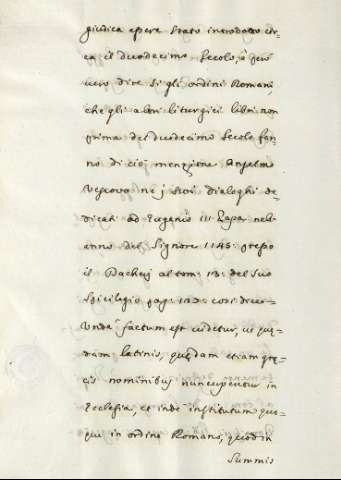 giudica essere stato introdotto cir=
ca il duodecimo secolo, è però
vero dire si gli ordini Romani,
che gli altri liturgici libri non
prima del duodecimo secolo fan=
no di ciò menzione Anselmo
Vescovo ne suoi dialoghi de=
dicati ad Eugenio III Papa nell
anno del Signore 1145: presso
il Dachery al tom: 13: del suo
Spicilegio pag: così dice=
Unde factum est videtur, ut que=
dam latinis, quedam etiam gre=
cis nominibus nuncupentur in
Ecclesia, et inde institutum quo=
que in ordine Romano, quod in
summis